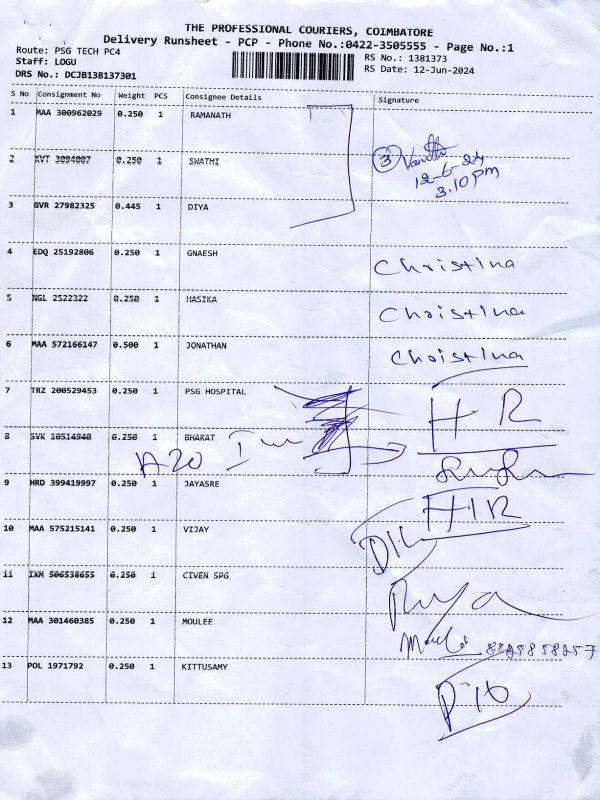 THE PROFESSIONAL COURIERS, COIMBATORE
Delivery Runsheet - PCP - Phone No.:0422-3505555 - Page No.:1
Route: PSG TECH PC4
RS No.: 1381373
Staff: LOGU
RS Date: 12-Jun-2024
DRS No.: DCJB138137301
S No Consignment No Weight PCS Consignee Details Signature
1 MAA 300962029 0.250 1 RAMANATH
2 KVT 3094007 0.250 1 SWATHI
3 Vanitha
12-6-24
3.10 pm
3 GVR 27982325 0.445 1 DIYA
4 EDQ 25192806 0.250 1 GNAESH Christina
5 NGL 2522322 0.250 1 HASIKA Christina
6 MAA 572166147 0.500 1 JONATHAN Christina
7 TRZ 200529453 0.250 1 PSG HOSPITAL HR
8 SVK 10514940 0.250 1 BHARAT
A20
9 HRD 399419997 0.250 1 JAYASRE HR
10 MAA 575215141 0.250 1 VIJAY
11 IXM 506538655 0.250 1 CIVEN SPG Priya
12 MAA 301460385 0.250 1 MOULEE
13 POL 1971792 0.250 1 KITTUSAMY